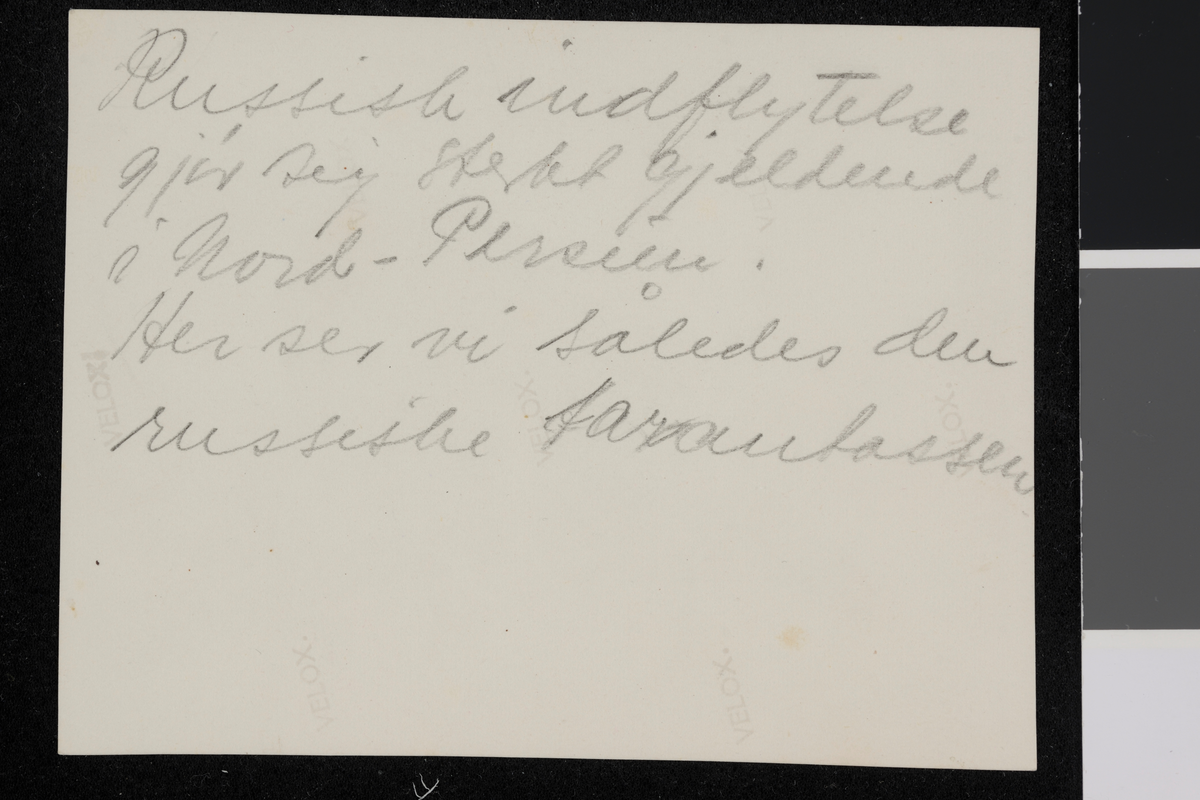 Russisk indflytelse
gjør sig sterkt gjeldende
i Nord-Persien.
Her ser vi således den
russiske tarantassen
VELOX.
VELOX.
VELOX.
VELOX.
VELOX.